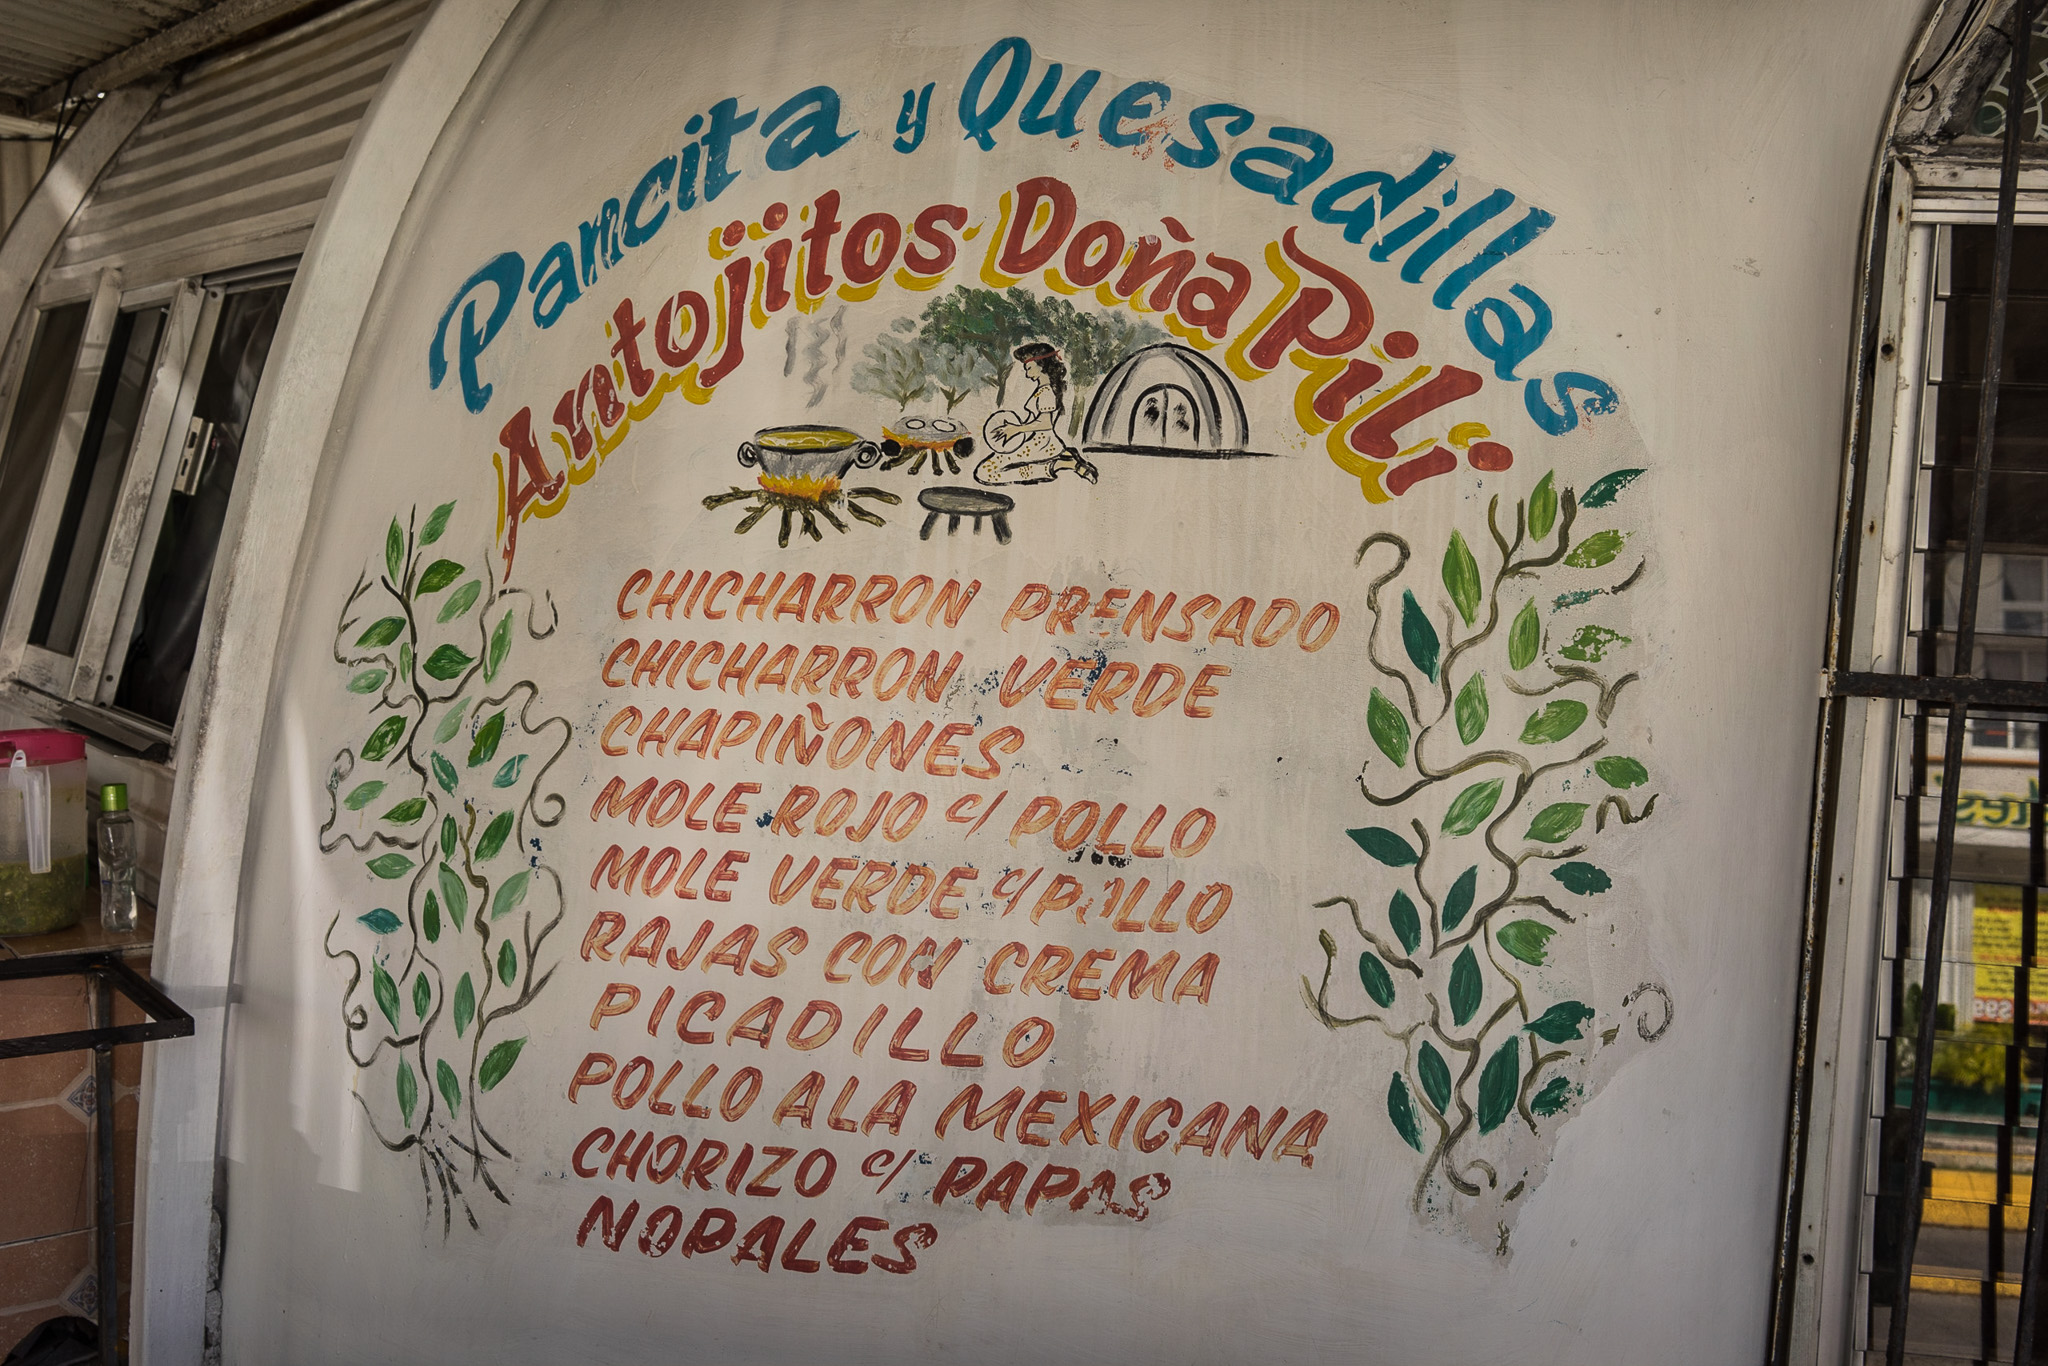 Pancita y Quesadillas
Antojitos Doña Pili
CHICHARRON PRENSADO
CHICHARRON VERDE
CHAPIÑONES
MOLE ROJO C/ POLLO
MOLE VERDE C/ POLLO
RAJAS CON CREMA
PICADILLO
POLLO ALA MEXICANA
CHORIZO C/ PAPAS
NOPALES